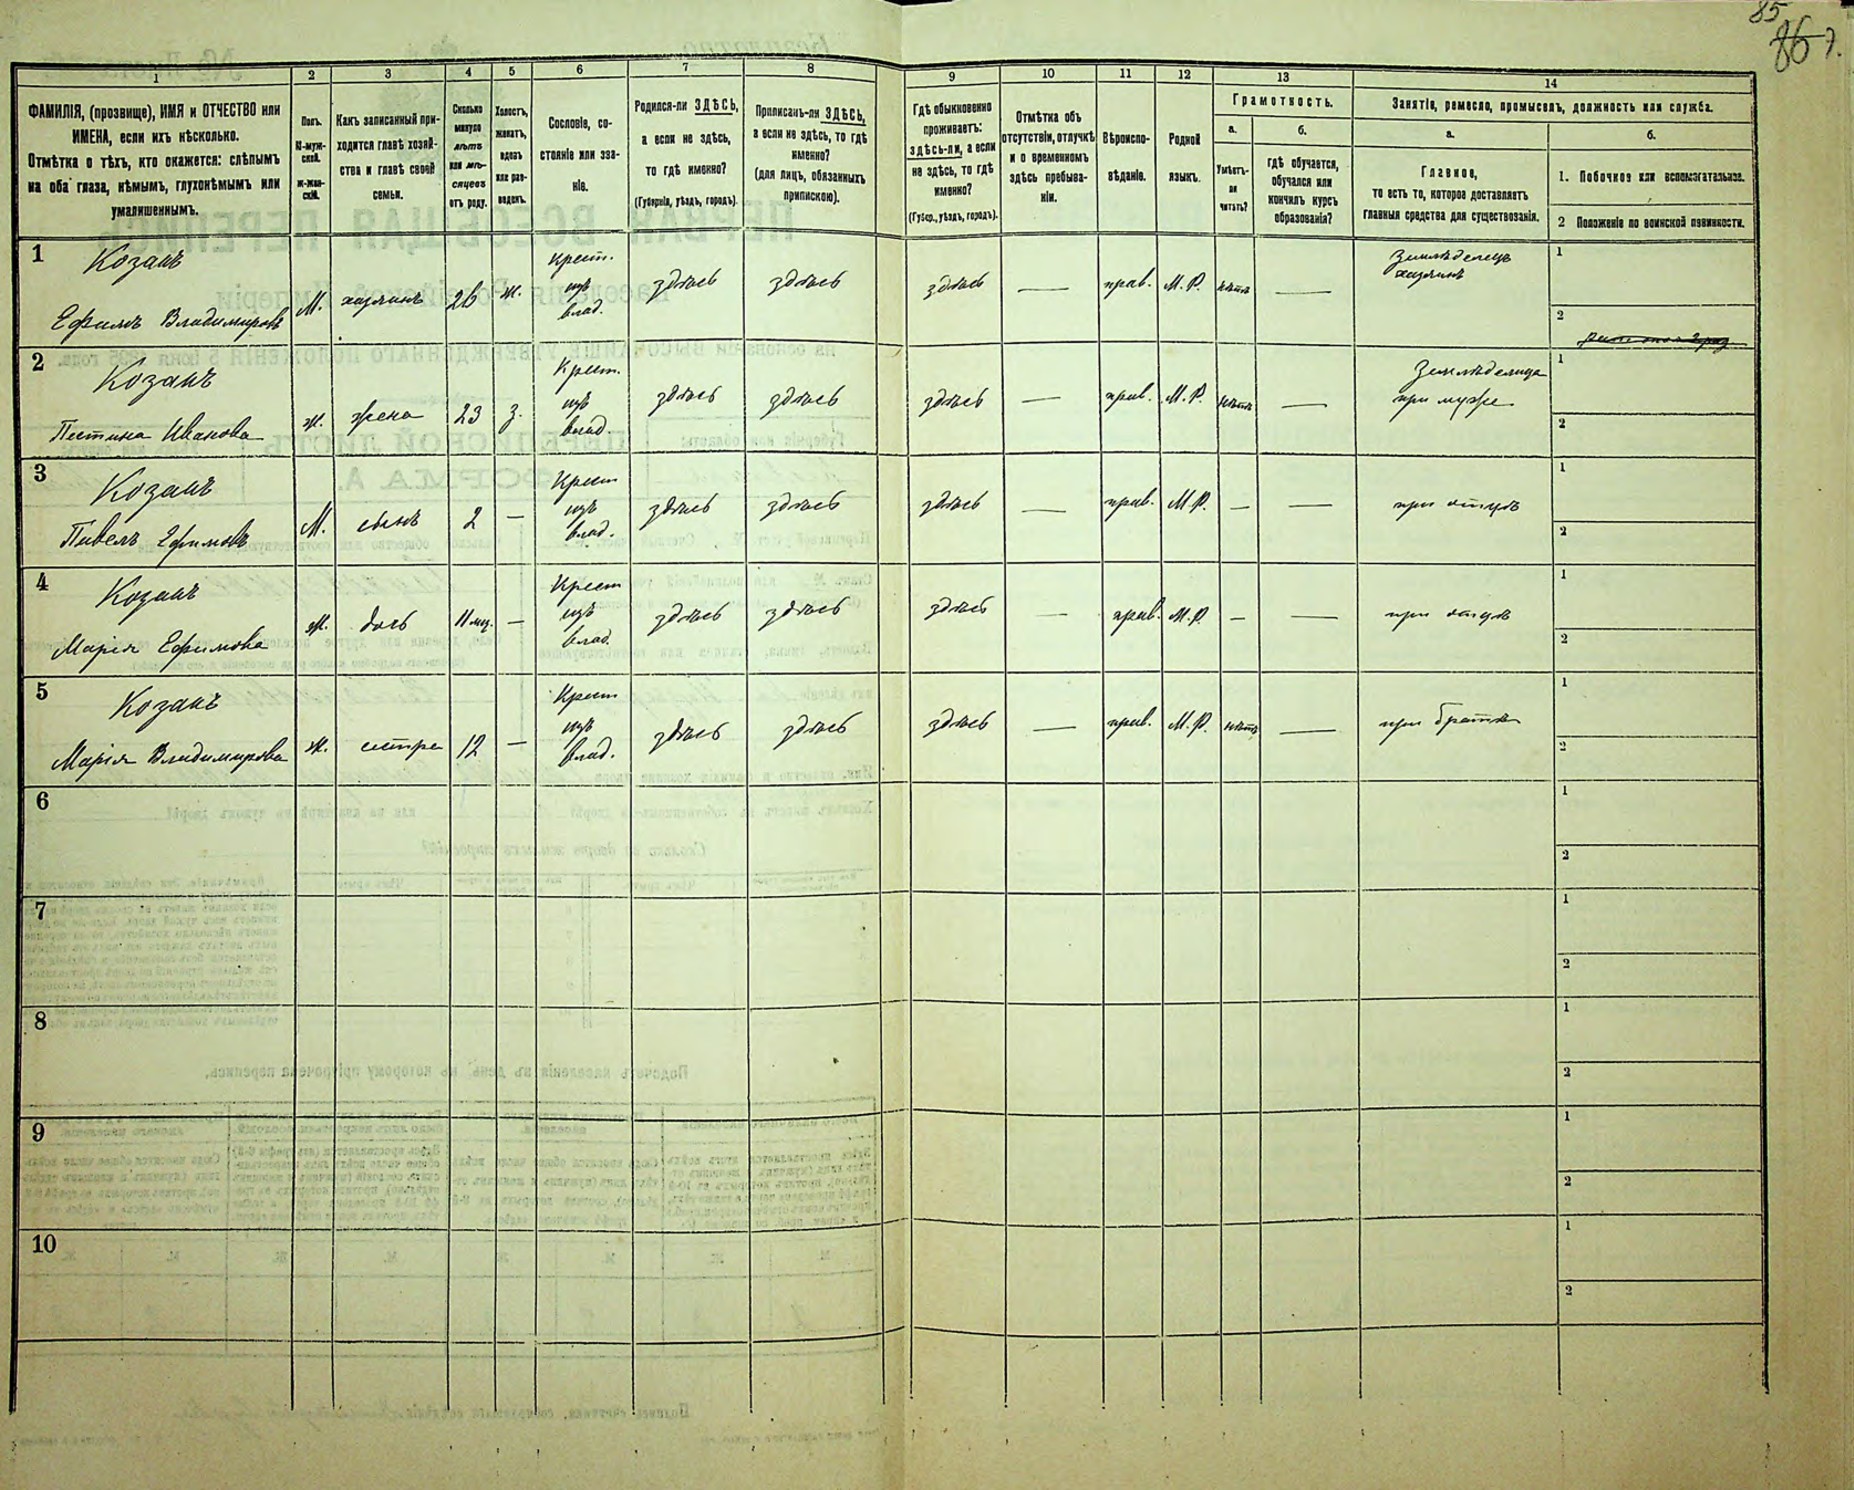 85
86
1
2
3
4
5
6
7
8
9
10
11
12
13
14
ФАМИЛІЯ, (прозвище), ИМЯ и ОТЧЕСТВО или
ИМЕНА, если ихъ нѣсколько.
Отмѣтка о тѣхъ, кто окажется: слѣпымъ
на оба глаза, нѣмымъ, глухонѣмымъ или
умалишеннымъ.
Полъ.
М-муж-
ской.
ж-жен-
скій.
Какъ записанный при-
ходится главѣ хозяй-
ства и главѣ своей
семьи.
Сколько
минуло
лѣтъ
или мѣ-
сяцевъ
отъ роду.
Холостъ,
женатъ,
вдовъ
или раз-
веденъ.
Сословіе, со-
стояніе или зва-
ніе.
Родился-ли ЗДѢСЬ,
а если не здѣсь,
то гдѣ именно?
(Губернія, уѣздъ, городъ).
Приписанъ-ли ЗДѢСЬ,
а если не здѣсь, то гдѣ
именно?
(для лицъ, обязанныхъ
припискою).
Гдѣ обыкновенно
проживаетъ:
здѣсь-ли, а если
не здѣсь, то гдѣ
именно?
(Губер., уѣздъ, городъ).
Отмѣтка объ
отсутствіи, отлучкѣ
и о временномъ
здѣсь пребыва-
ніи.
Вѣроиспо-
вѣданіе.
Родной
языкъ.
Грамотность.
а.
б.
Умѣетъ-
ли
читать?
гдѣ обучается,
обучался или
кончилъ курсъ
образованія?
Занятіе, ремесло, промыселъ, должность или служба.
а.
б.
Главное,
то есть то, которое доставляетъ
главныя средства для существованія.
1. Побочное или вспомагательное.
2 Положеніе по воинской повинности.
1
Козакъ
Ефимъ Владимировъ
М.
хазяинъ
26
ж.
крест.
изъ
влад.
здѣсь
здѣсь
здѣсь
—
прав.
М. Р.
нѣтъ
—
Земледѣлецъ
хазяинъ
1
2
2
Козакъ
Иванова
ж.
жена
23
з.
Крест.
изъ
влад.
здѣсь
здѣсь
здѣсь
—
прав.
М. Р.
нѣтъ
—
Земледѣлица
при мужѣ
1
2
3
Козакъ
Павелъ Ефимовъ
М.
сынъ
2
—
Крест
изъ
влад.
здѣсь
здѣсь
здѣсь
—
прав.
М. Р.
—
—
при отцѣ
1
2
4
Козакъ
Марія Ефимова
ж.
дочь
11 мц.
—
Крест
изъ
влад.
здѣсь
здѣсь
здѣсь
—
прав.
М. Р.
—
—
при отцѣ
1
2
5
Козакъ
Марія Владимирова
ж.
сестра
12
—
Крест
изъ
влад.
здѣсь
здѣсь
здѣсь
—
прав.
М. Р.
нѣтъ
—
при братѣ
1
2
6
1
2
7
1
2
8
1
2
9
1
2
10
1
2